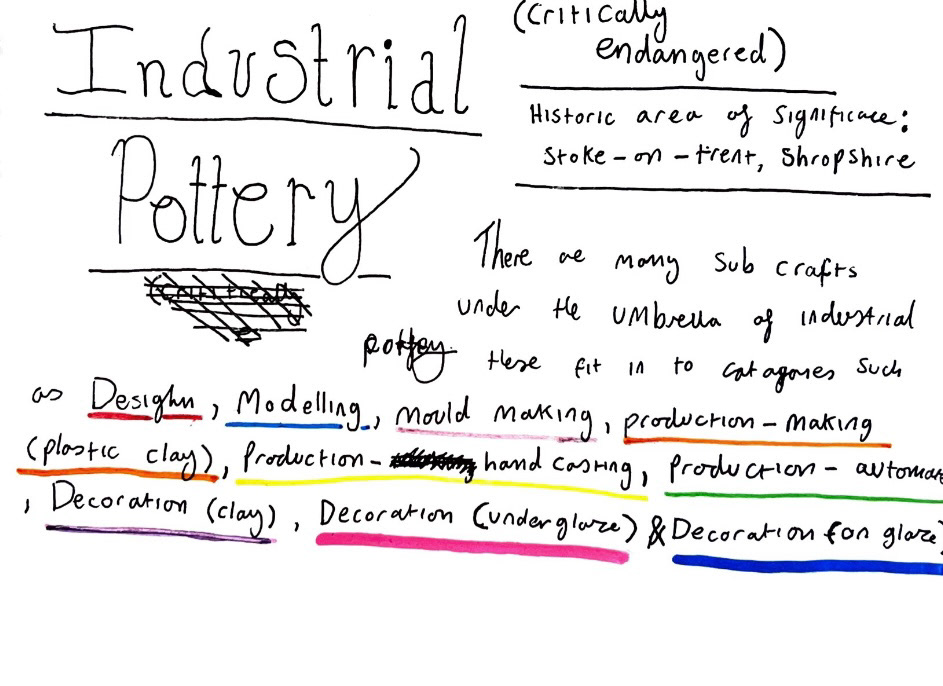 Industrial
Pottery
(Critically
endangered)
Historic area of Significace:
Stoke-on-trent, Shropshire
There are many Sub crafts
under the umbrella of industrial
pottey these fit in to catagories such
as Desighn, Modelling, mould making, production-making
(plastic clay), Production- hand casting, production-automate
, Decoration (clay), Decoration (underglaze) & Decoration (on glaze)